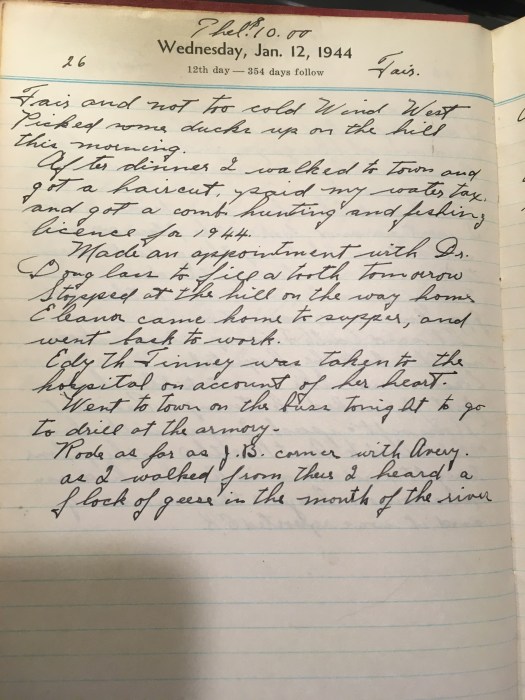 Phel. $10.00
Wednesday, Jan. 12, 1944
26
12th day — 354 days follow
Fair.
Fair and not too cold Wind West
Picked some ducks up on the hill
this morning.
After dinner I walked to town and
got a haircut, paid my water tax.
and got a comb hunting and fishing
licence for 1944.
Made an appointment with Dr.
Douglass to fill a tooth tomorrow
Stopped at the hill on the way home
Eleanor came home to supper, and
went back to work.
Edyth Finney was taken to the
hospital on account of her heart.
Went to town on the buss tonight to go
to drill at the armory.
Rode as far as J.B. corner with Avery.
as I walked from there I heard a
flock of geese in the mouth of the river